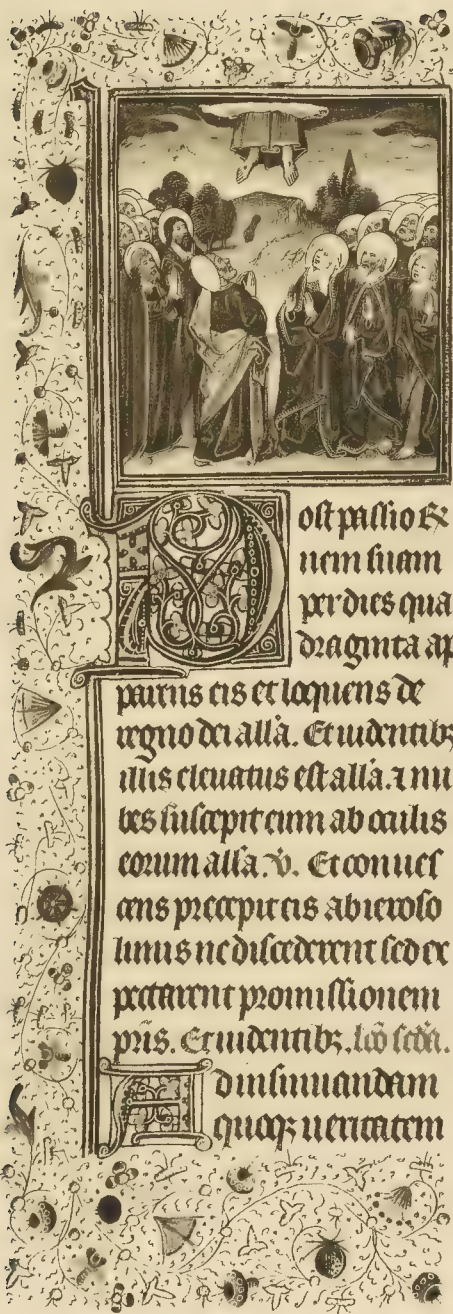 Post passio &
nem suam
per dies qua
draginta ap
parens eis et loquens de
regno dei all'a. Et uidentibꝫ
illis eleuatus est all'a. ⁊ nu
bes suscepit eum ab oculis
eorum all'a. v̇. Et conues
cens precepit eis ab ieroso
limis ne discederent sed ex
pectarent promissionem
pr̃is. Et uidentibꝫ. lc̃o sc̃da.
Ad insinuandam
quoqꝫ ueritatem